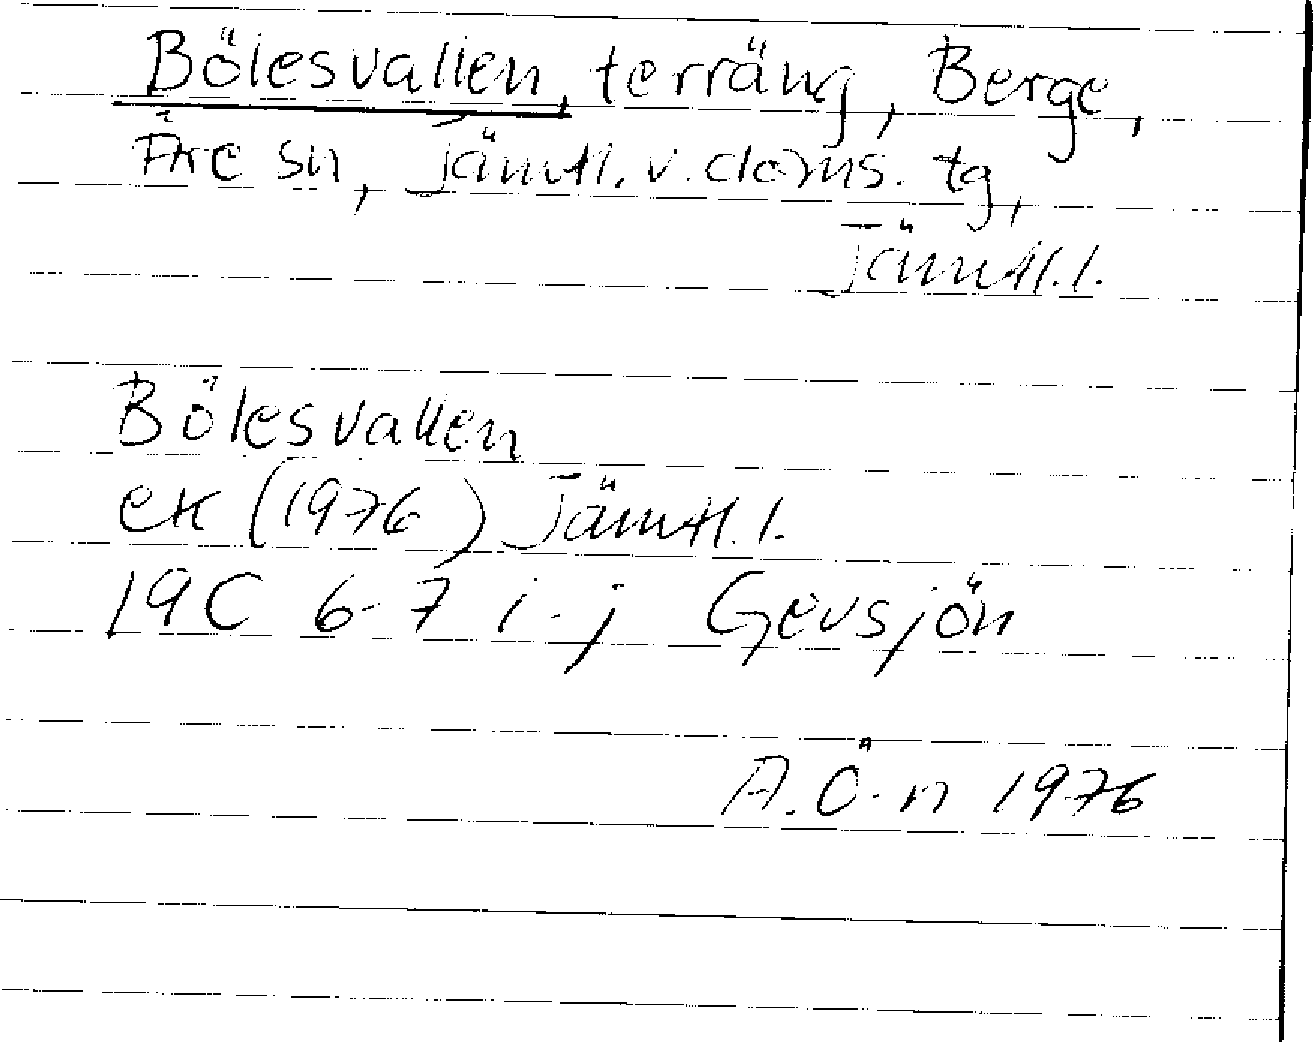 Bölesvallen, terräng, Berge,
Åre sn, Jämtl. v. doms. tg,
Jämtl. l.
Bölesvallen
ek (1976) Jämtl. l.
19C 6-7 i-j Gevsjön
A. Ö-n 1976